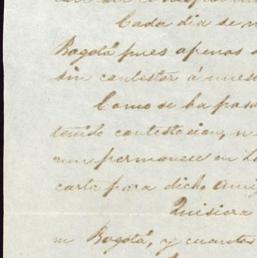 Cada dia se
Bogotá pues apenas
sin contestar á nues
Como se ha pasa
tenido contestacion, n
aun permanece en La
carta para dicho ami
Quisiera
n Bogotá, y cuantos